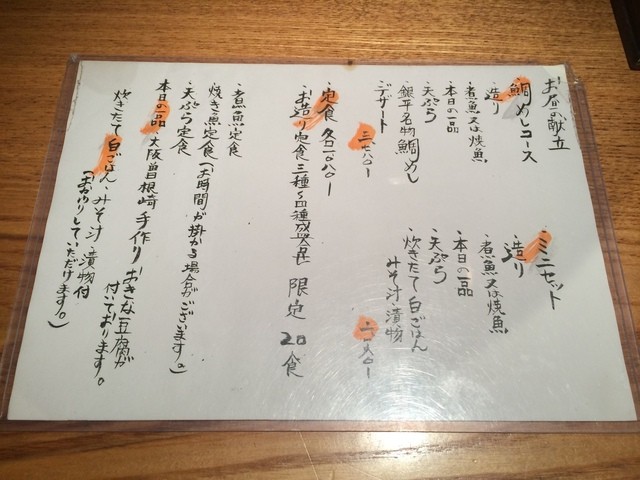 お昼の献立
・鯛めしコース
・造り
・煮魚又は焼魚
・本日の一品
・天ぷら
・銀平名物鯛めし
・デザート
三七八〇ー
・ミニセット
・造り
・煮魚又は焼魚
・本日の一品
・天ぷら
・炊きたて白ごはん
みそ汁・漬物
・定食 各一〇八〇ー
・お造り定食 三種盛 限定20食
・煮魚定食
・焼き魚定食(お時間が掛かる場合がございます。)
・天ぷら定食
本日の一品・大阪曽根崎手作りおきな豆腐が
付いております。
炊きたて白ごはん・みそ汁・漬物付
(おかわりしていただけます。)